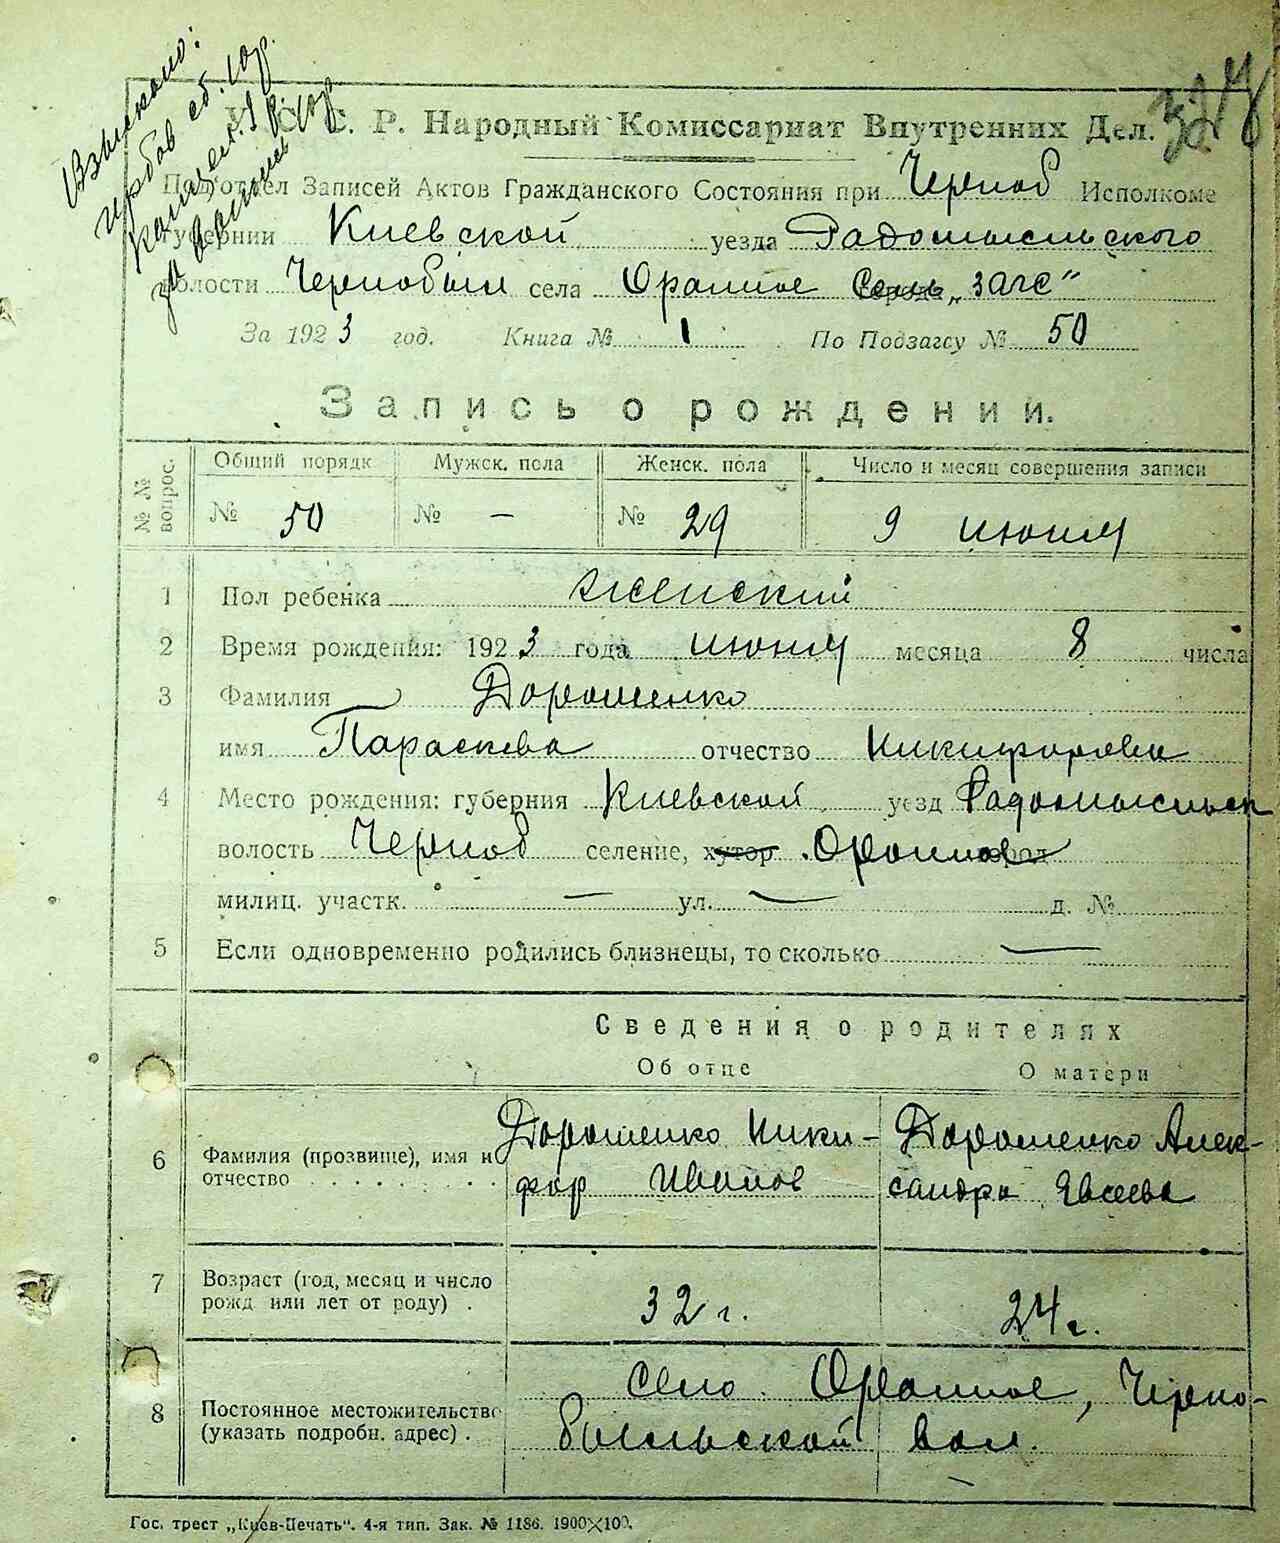 Взыскано:
гербов сб. 1 0 р.
канцел. 1 р.
за запись 10 р
327
У. С. С. Р. Народный Комиссариат Внутренних Дел.
Под'отдел Записей Актов Гражданского Состояния при Черноб Исполкоме
губернии Киевской уезда Радомысльского
волости Чернобыл села Оранное Сель „загс"
За 1923 год. Книга № 1 По Подзагсу № 50
Запись о рождении.
№ № вопрос. Общий порядк Мужск. пола Женск. пола Число и месяц совершения записи
№ 50 № — № 29 9 июня
1 Пол ребенка женский
2 Время рождения: 1923 года июня месяца 8 числа
3 Фамилия Дорошенко
имя Параскева отчество Никифорова
4 Место рождения: губерния Киевской уезд Радомысльск
волость Черноб селение, хутор Оранное город
милиц. участк. — ул. — д. №
5 Если одновременно родились близнецы, то сколько —
Сведения о родителях
Об отце О матери
Дорошенко Ники- Дорошенко Алек-
6 Фамилия (прозвище), имя и
отчество . . . . . . . . . фор Иванов сандра Явсеева
7 Возраст (год, месяц и число
рожд или лет от роду) . 32 г. 24 г.
село Оранное, Черно-
8 Постоянное местожительство
(указать подробн. адрес) . быльской вол.
Гос. трест „Киев-Печать". 4-я тип. Зак. № 1186. 1900×100.